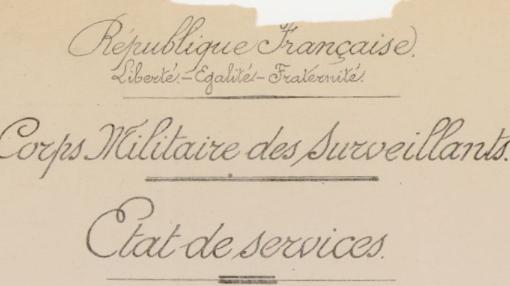 République Française.
Liberté.-Egalité-Fraternité.
Corps Militaire des Surveillants.
Etat de services.